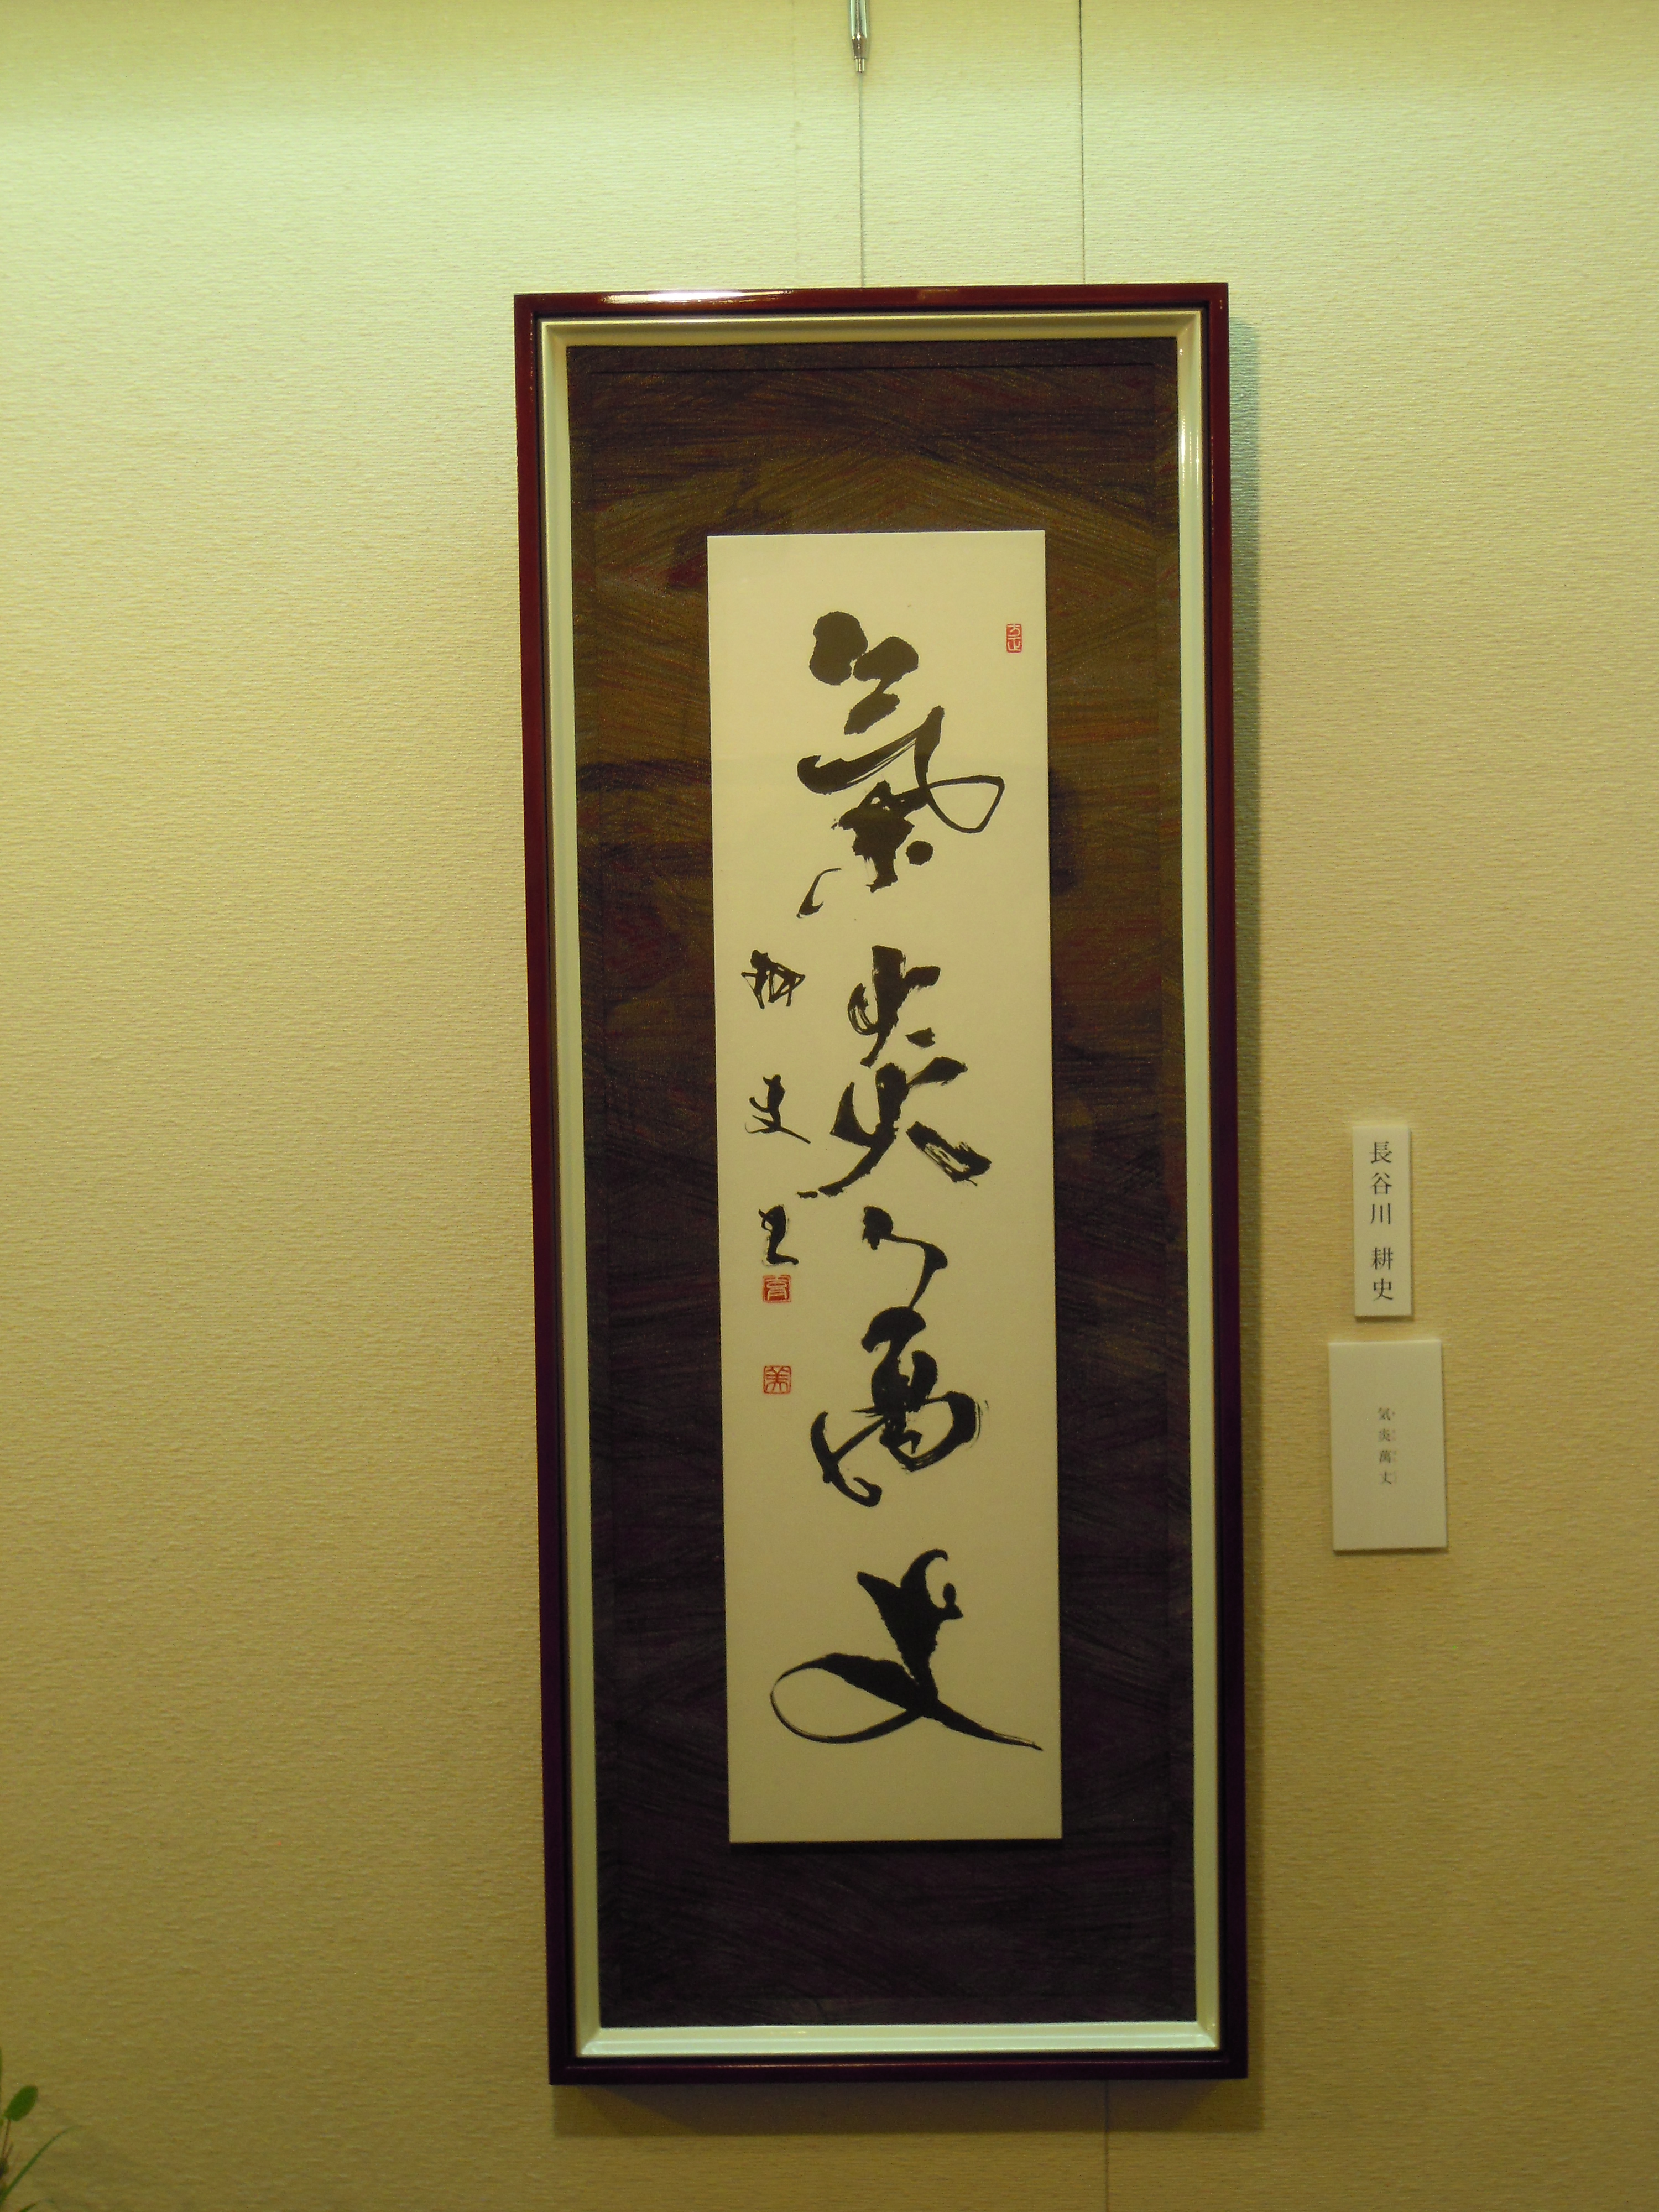 氣炎萬丈
耕史書
長谷川 耕史
気炎萬丈